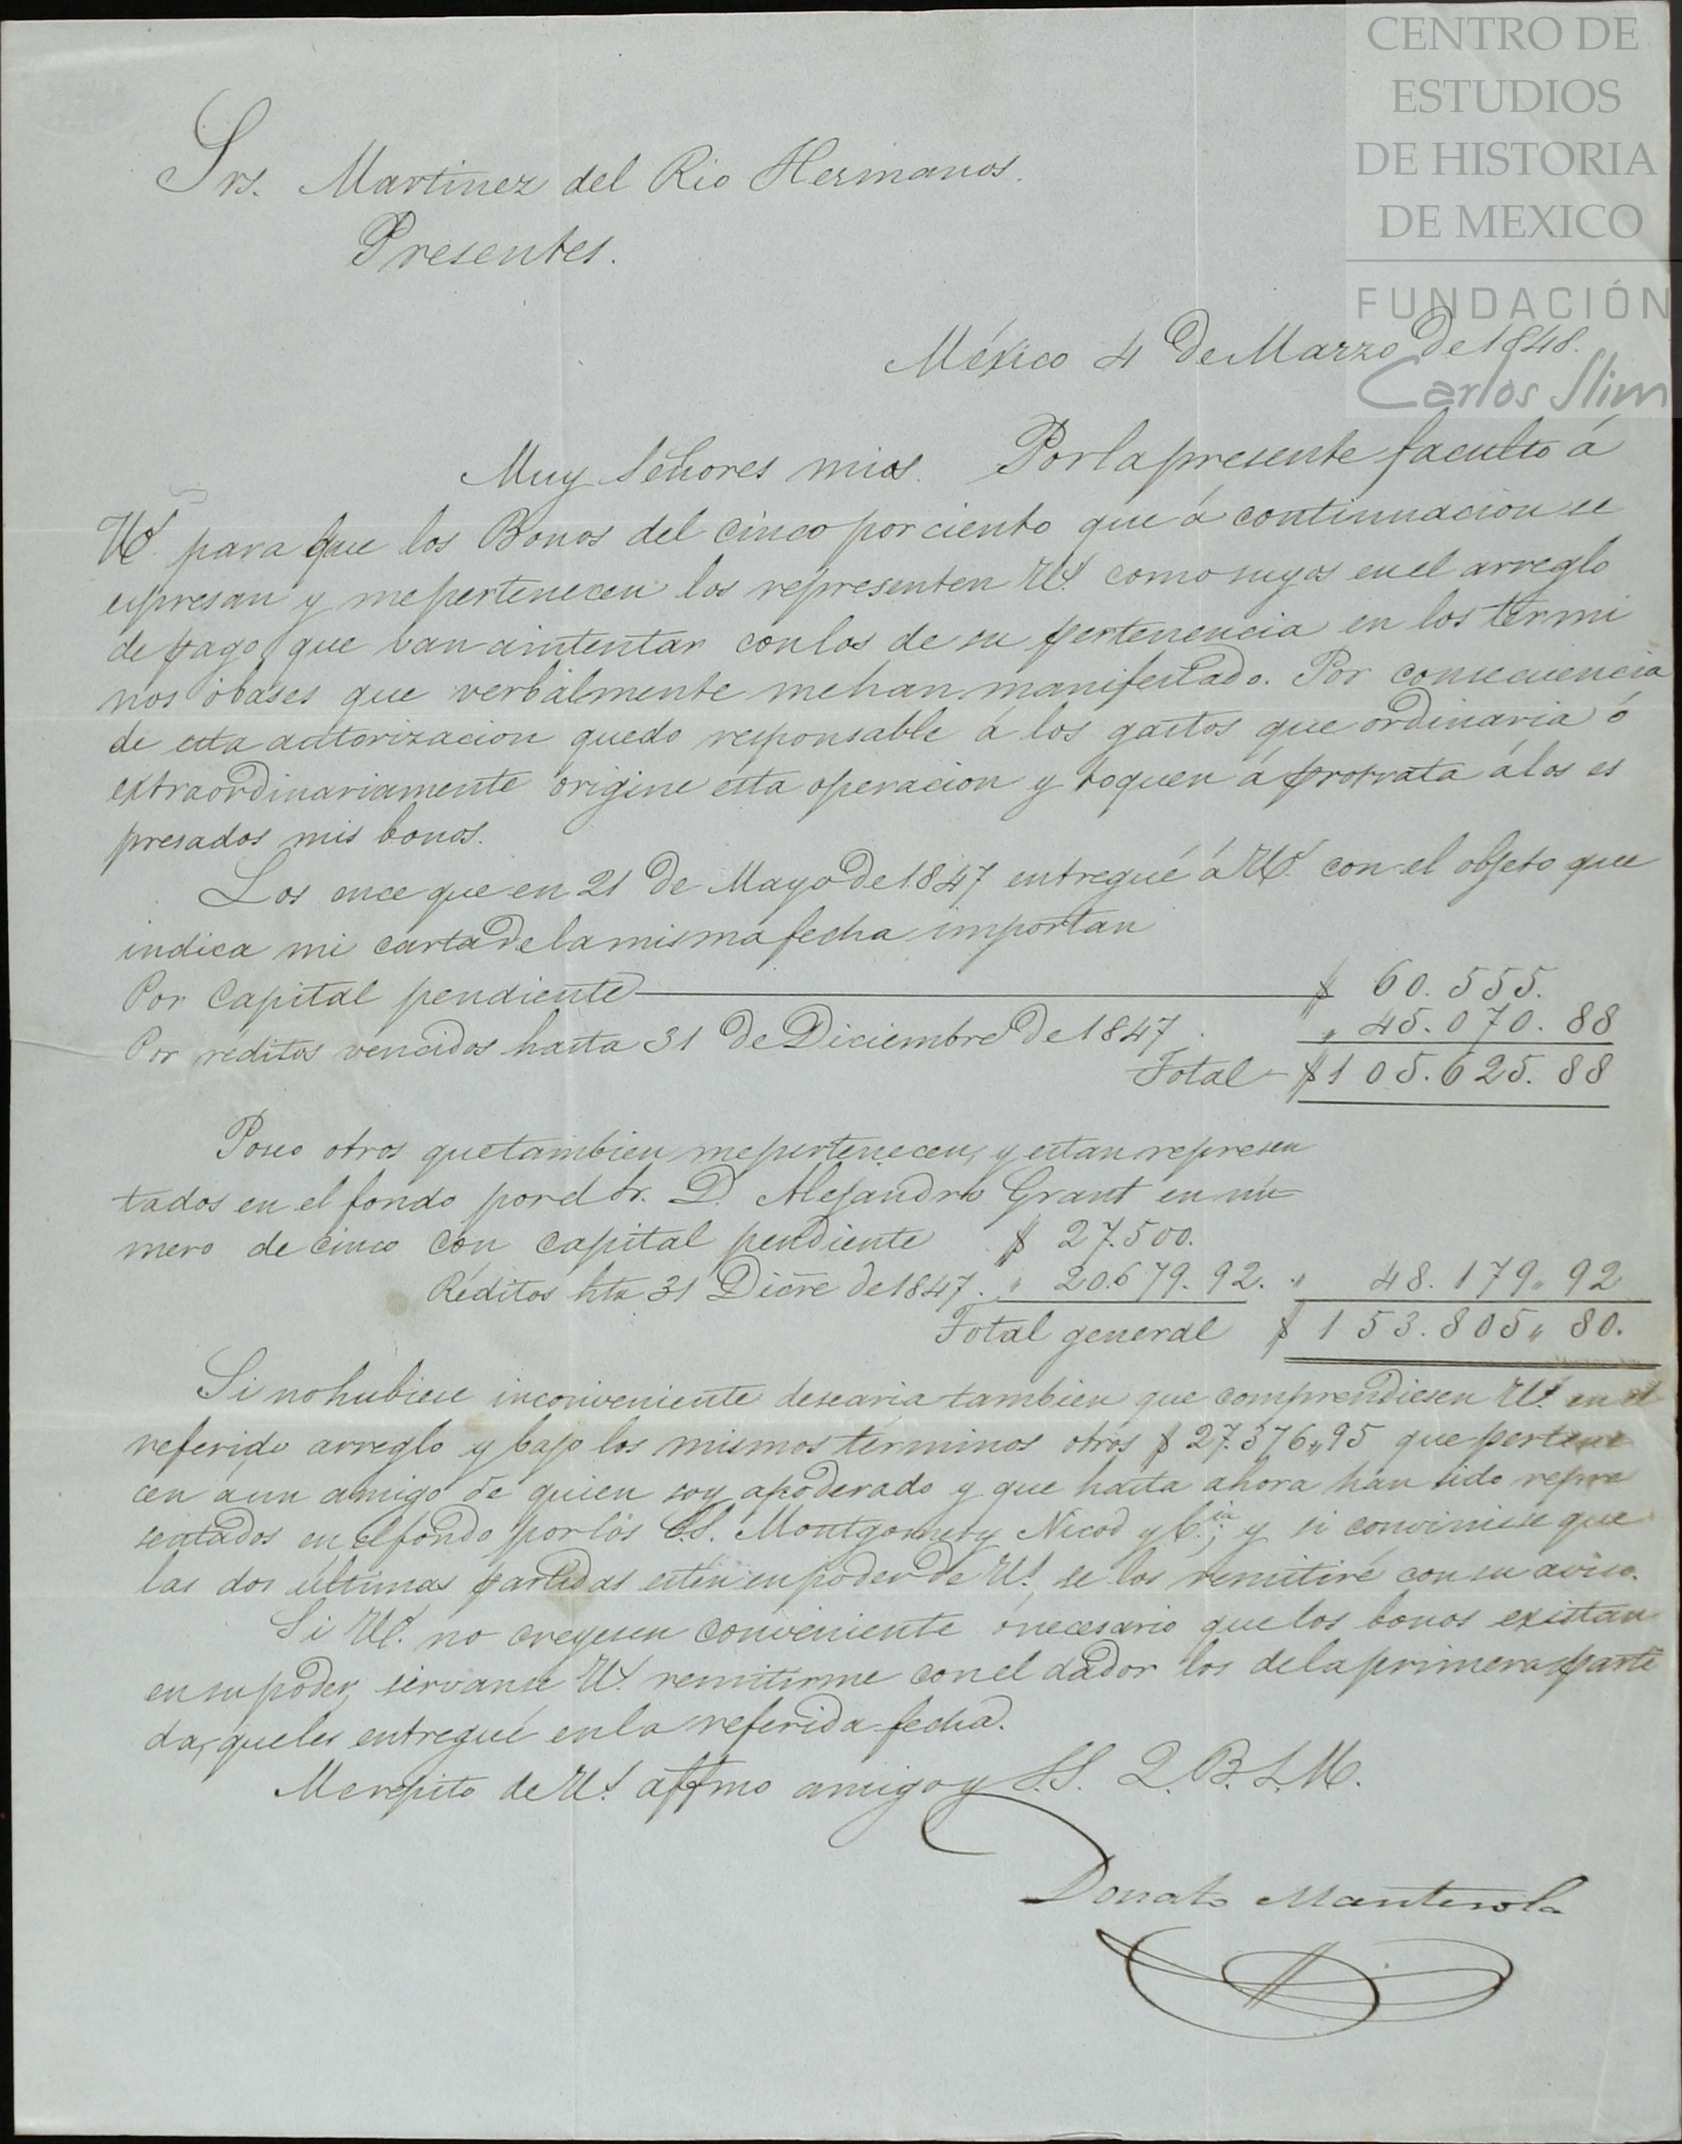 CENTRO DE
ESTUDIOS
DE HISTORIA
DE MEXICO
FUNDACIÓN
Carlos Slim
Srs. Martinez del Rio Hermanos.
Presentes.
México 4 de Marzo de 1848.
Muy Señores mios. Por la presente faculto á
Us. para que los Bonos del cinco por ciento que á continuacion se
espresan y me pertenecen los representen Us. como suyos en el arreglo
de pago, que van aintentar con los de su pertenencia en los térmi
nos óbases que verbalmente me han manifestado. Por consecuencia
de esta autorizacion quedo responsable á los gastos que ordinaria ó
extraordinariamente origine esta operacion y toquen á prorrata á los es
presados mis bonos.
Los once que en 21 de Mayo de 1847 entregué á Us. con el objeto que
indica mi carta de la misma fecha importan
Por Capital pendiente $ 60.555.
Por réditos vencidos hasta 31 de Diciembre de 1847 „ 45.070. 88
Total $ 105.625. 88
Poseo otros que tambien me pertenecen, y estan represen
tados en el fondo por el Sr. D. Alejandro Grant en nú
mero de cinco con capital pendiente $ 27.500.
Réditos hta 31 Dicre de 1847. „ 20.679. 92. „ 48.179„ 92
Total general $ 153.805„ 80.
Si no hubiese inconveniente desearia tambien que comprendiesen Us. en el
referido arreglo y bajo los mismos términos otros $ 27.376„95 que pertene
cen aun amigo de quien soy apoderado y que hasta ahora han sido repre
sentados en el fondo por los SS. Montgomery Nicod y C.ia; y si conviniese que
las dos últimas partidas estén en poder de Us. se los remitiré con su aviso.
Si Us. no creyesen conveniente ó necesario que los bonos existan
en su poder, sirvanse Us. remitirme con el dador los de la primera parti
da, que les entregué en la referida fecha.
Me repito de Us. affmo amigo y S.S. Q. B. S. M.
Donato Manterola